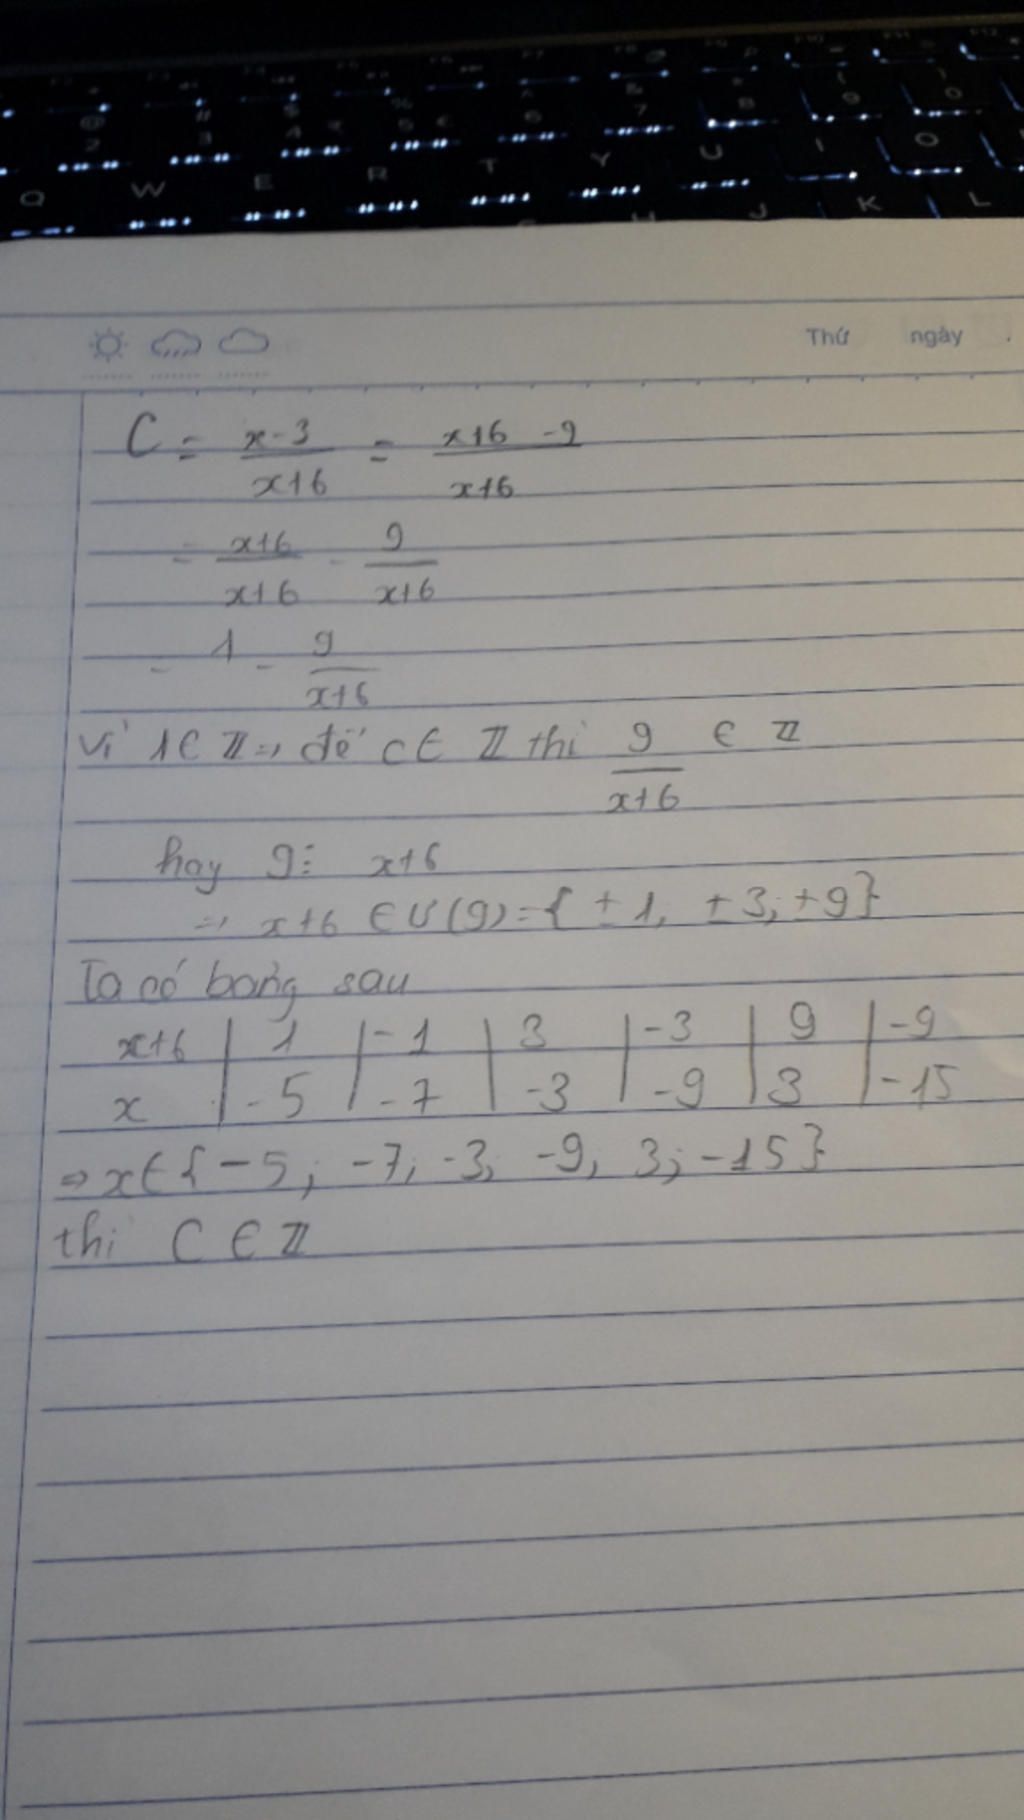 Q W E R T Y U I O
J K L
Thứ ngày
C = x-3 / x+6 = x+6 -9 / x+6
= x+6 / x+6 - 9 / x+6
= 1 - 9 / x+6
Vì 1 ∈ Z => để C ∈ Z thì 9 / x+6 ∈ Z
hay 9 ⋮ x+6
=> x+6 ∈ Ư(9) = { ±1, ±3; ±9}
Ta có bảng sau
x+6 | 1 | -1 | 3 | -3 | 9 | -9
x | -5 | -7 | -3 | -9 | 3 | -15
=> x ∈ {-5; -7; -3; -9; 3; -15}
thì C ∈ Z